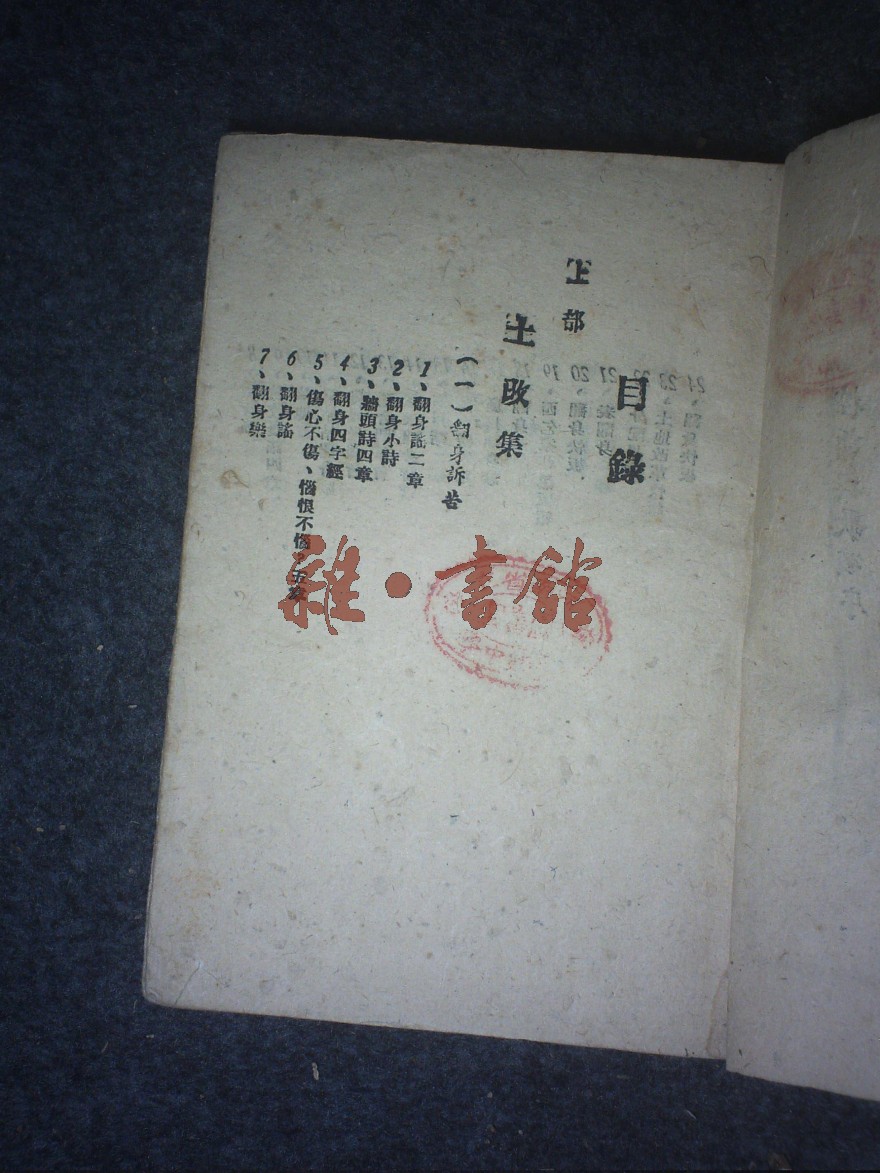 目錄
上部
土改集
(一)翻身訴苦
1、翻身謠二章
2、翻身小詩
3、牆頭詩四章
4、翻身四字經
5、傷心不傷、惱恨不惱?五章
6、翻身謠
7、翻身樂
雜·書館